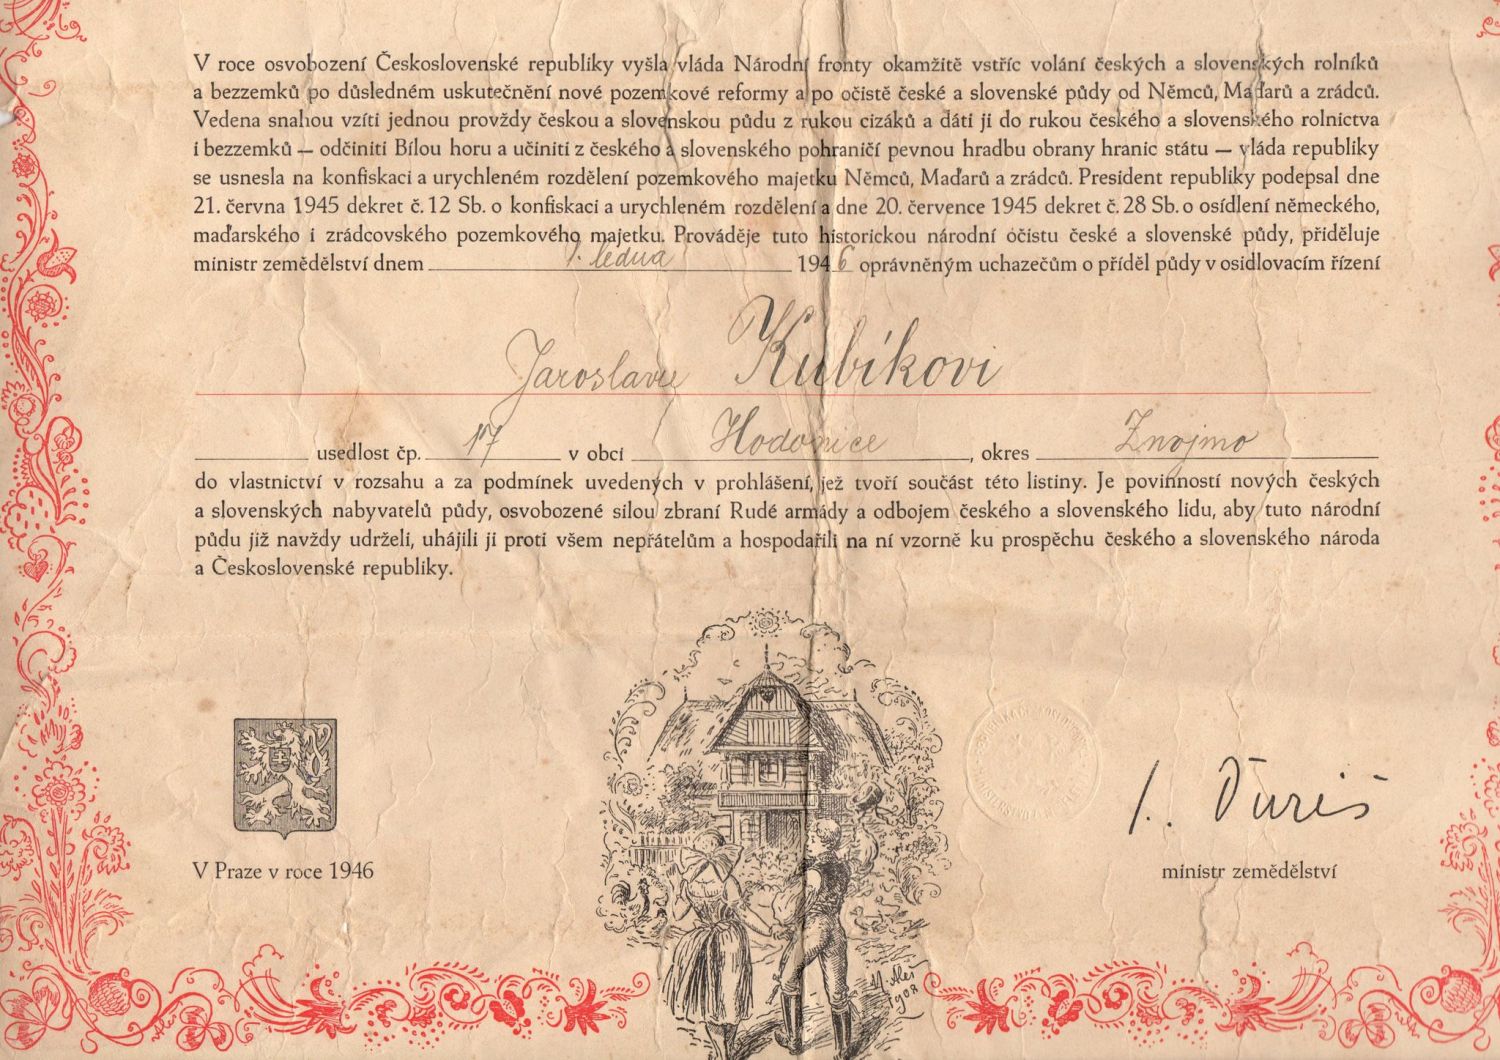 V roce osvobození Československé republiky vyšla vláda Národní fronty okamžitě vstříc volání českých a slovenských rolníků
a bezzemků po důsledném uskutečnění nové pozemkové reformy a po očistě české a slovenské půdy od Němců, Maďarů a zrádců.
Vedena snahou vzíti jednou provždy českou a slovenskou půdu z rukou cizáků a dáti ji do rukou českého a slovenského rolnictva
i bezzemků — odčiniti Bílou horu a učiniti z českého a slovenského pohraničí pevnou hradbu obrany hranic státu — vláda republiky
se usnesla na konfiskaci a urychleném rozdělení pozemkového majetku Němců, Maďarů a zrádců. President republiky podepsal dne
21. června 1945 dekret č. 12 Sb. o konfiskaci a urychleném rozdělení a dne 20. července 1945 dekret č. 28 Sb. o osídlení německého,
maďarského i zrádcovského pozemkového majetku. Prováděje tuto historickou národní očistu české a slovenské půdy, přiděluje
ministr zemědělství dnem 1. ledna 1946 oprávněným uchazečům o příděl půdy v osidlovacím řízení
Jaroslavu Kubíkovi
usedlost čp. 17 v obci Hodonice, okres Znojmo
do vlastnictví v rozsahu a za podmínek uvedených v prohlášení, jež tvoří součást této listiny. Je povinností nových českých
a slovenských nabyvatelů půdy, osvobozené silou zbraní Rudé armády a odbojem českého a slovenského lidu, aby tuto národní
půdu již navždy udrželi, uhájili ji proti všem nepřátelům a hospodařili na ní vzorně ku prospěchu českého a slovenského národa
a Československé republiky.
J. Ďuriš
V Praze v roce 1946
ministr zemědělství
M. Aleš
1908